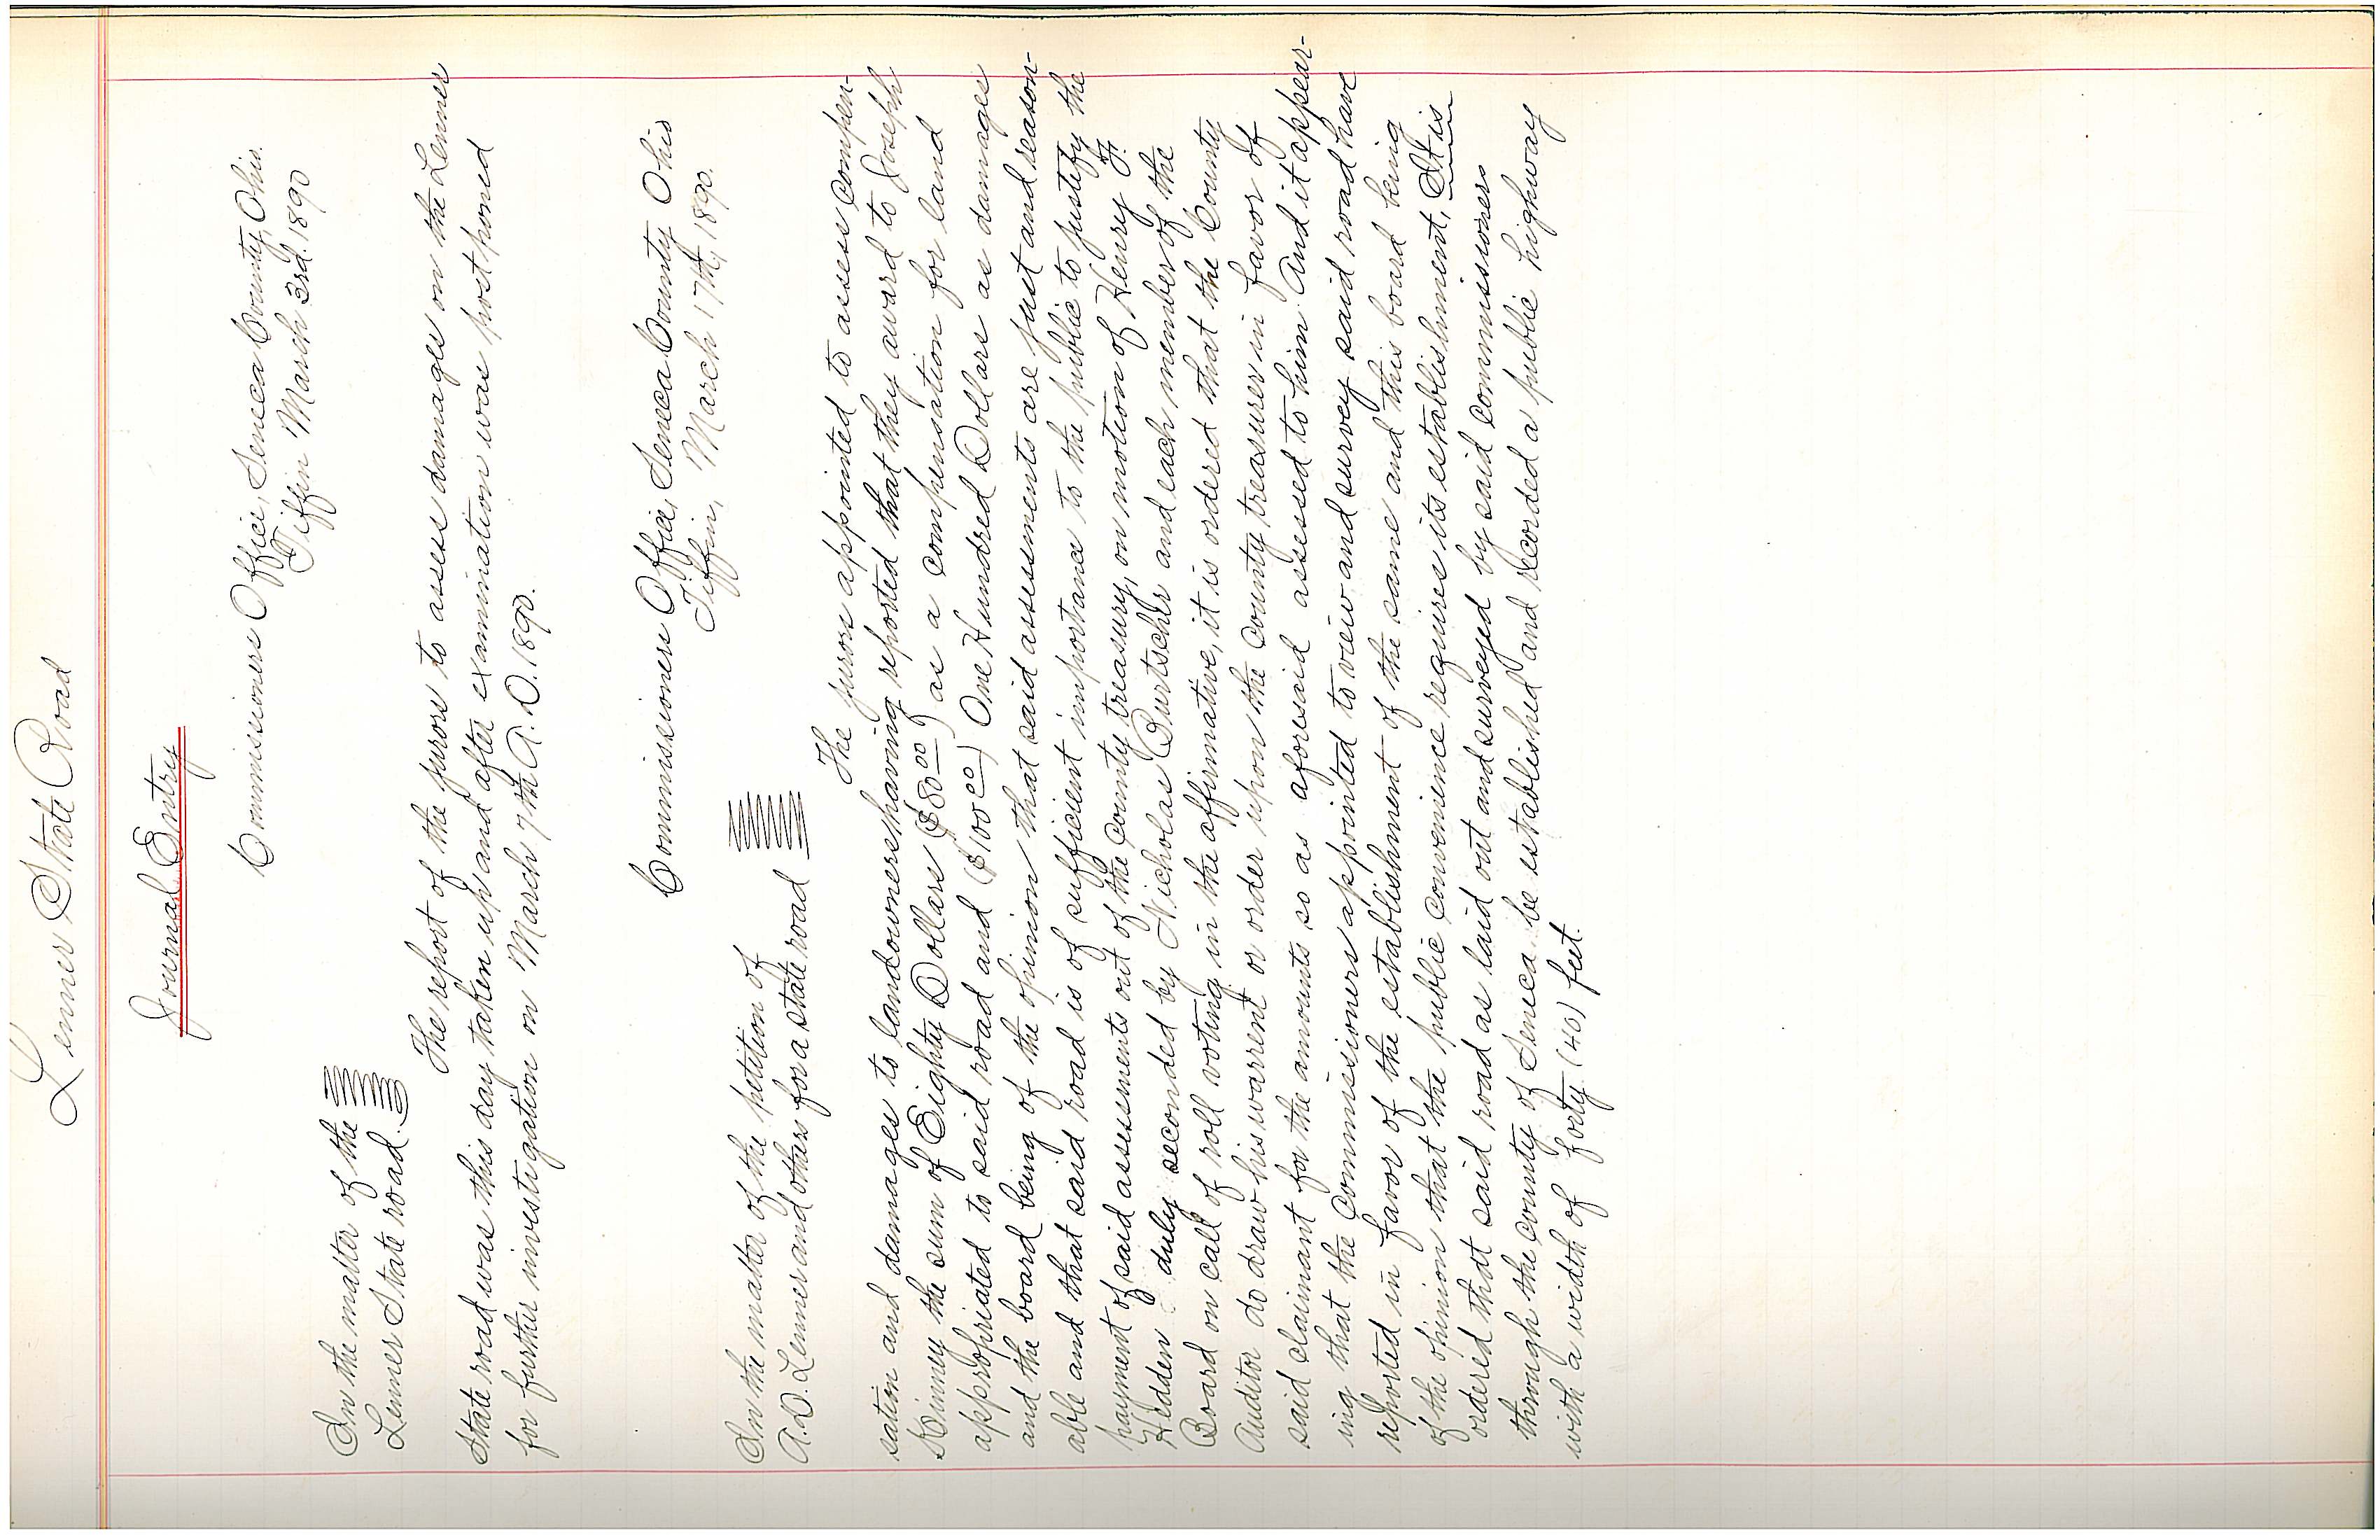 Lenner State Road
Journal Entry
Commissioners Office, Seneca County, Ohio.
Tiffin March 3rd. 1890
In the matter of the
Lenner State road.
The report of the jurors to assess damages on the Lenner
State road was this day taken up and after examination was postponed
for further investigation on March 7th A.D. 1890.
Commissioners Office, Seneca County Ohio
Tiffin, March 17th, 1890.
In the matter of the petition of
A.D. Lenner and others for a state road
The jurors appointed to assess compen-
sation and damages to landowners having reported that they award to Joseph
Kinney the sum of Eighty Dollars ($80 00) as a compensation for land
appropriated to said road and ($100 00) One Hundred Dollars as damages
and the board being of the opinion that said assessments are just and reason-
able and that said road is of sufficient importance to the public to justify the
payment of said assessments out of the County treasury, on motion of Henry F.
Hedden duly seconded by Nicholas Burtscher and each member of the
Board on call of roll voting in the affirmative, it is ordered that the County
Auditor do draw his warrent or order upon the County treasurer in favor of
said claimant for the amounts so as aforesaid assessed to him. And it appear-
ing that the Commissioners appointed to view and survey said road have
reported in favor of the establishment of the same and this board being
of the opinion that the public convenience requires its establishment, It is
ordered that said road as laid out and surveyed by said commissioners
through the county of Seneca, be established and recorded a public highway
with a width of forty (40) feet.